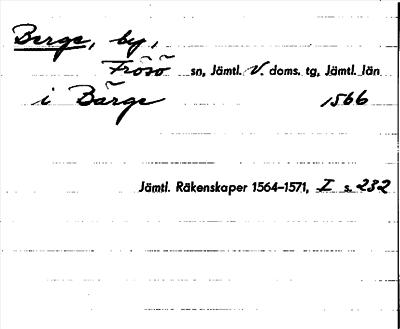 Berge, by,
Frösö sn, Jämtl. V. doms. tg, Jämtl. län
i Bärge 1566
Jämtl. Räkenskaper 1564–1571, I s. 232